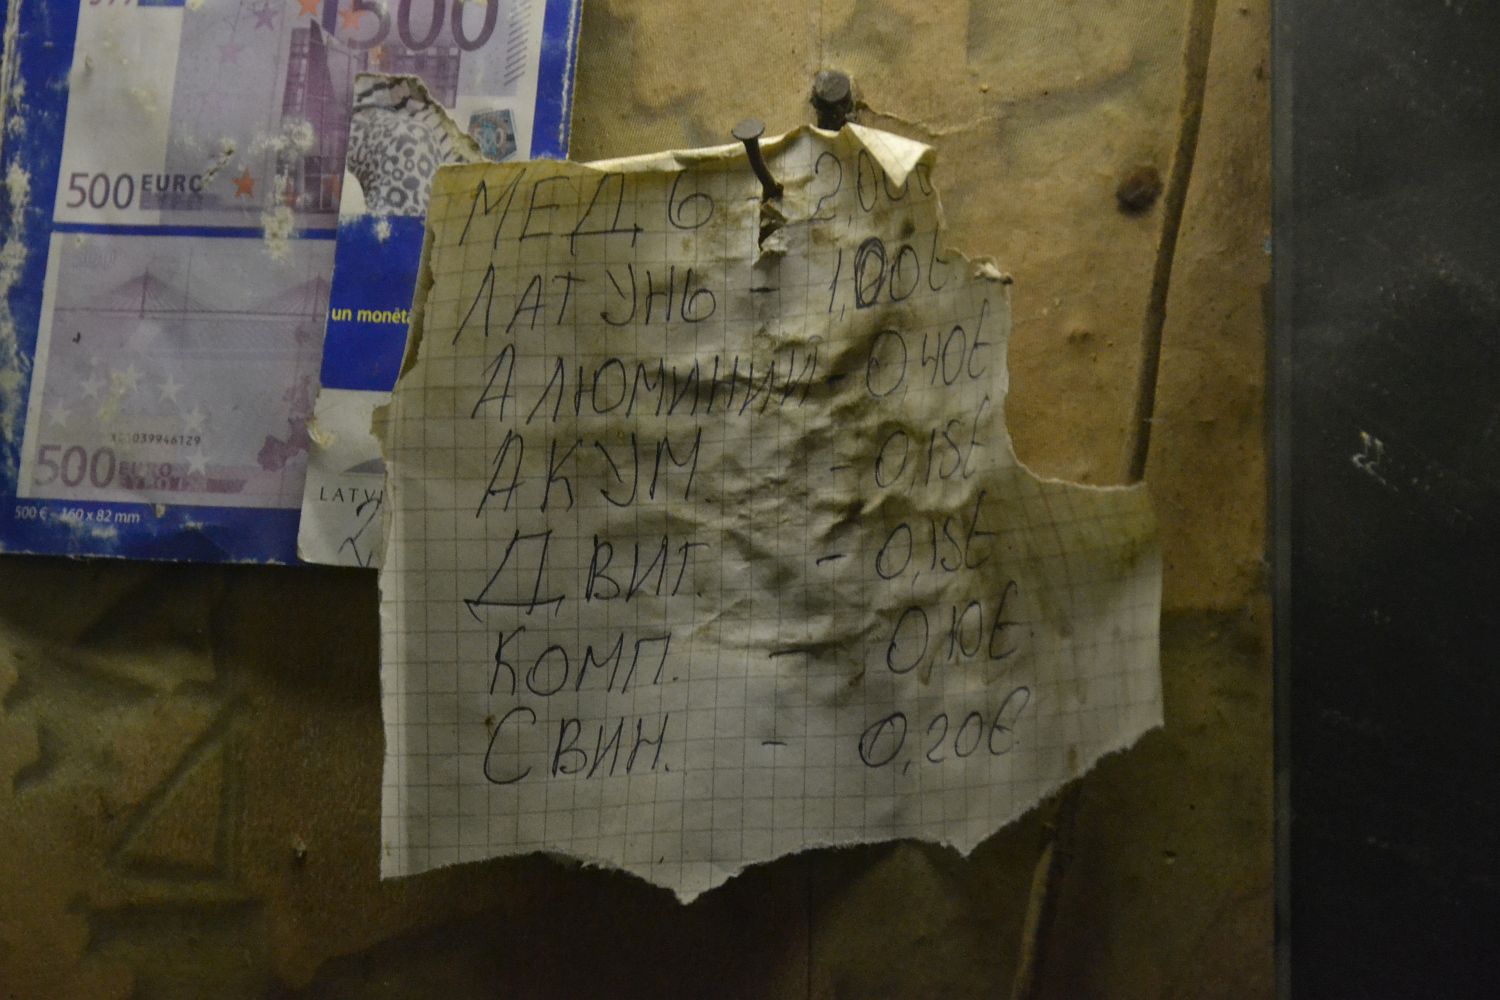 500
500 EURO
un monēta
X01039946129
500 EURO
500 € - 160 x 82 mm
LATVI
МЕДЬ - 2,00
ЛАТУНЬ - 1,00€
АЛЮМИНИЙ - 0,40€
АКУМ. - 0,15€
ДВИГ. - 0,15€
КОМП. - 0,10€
СВИН. - 0,20€